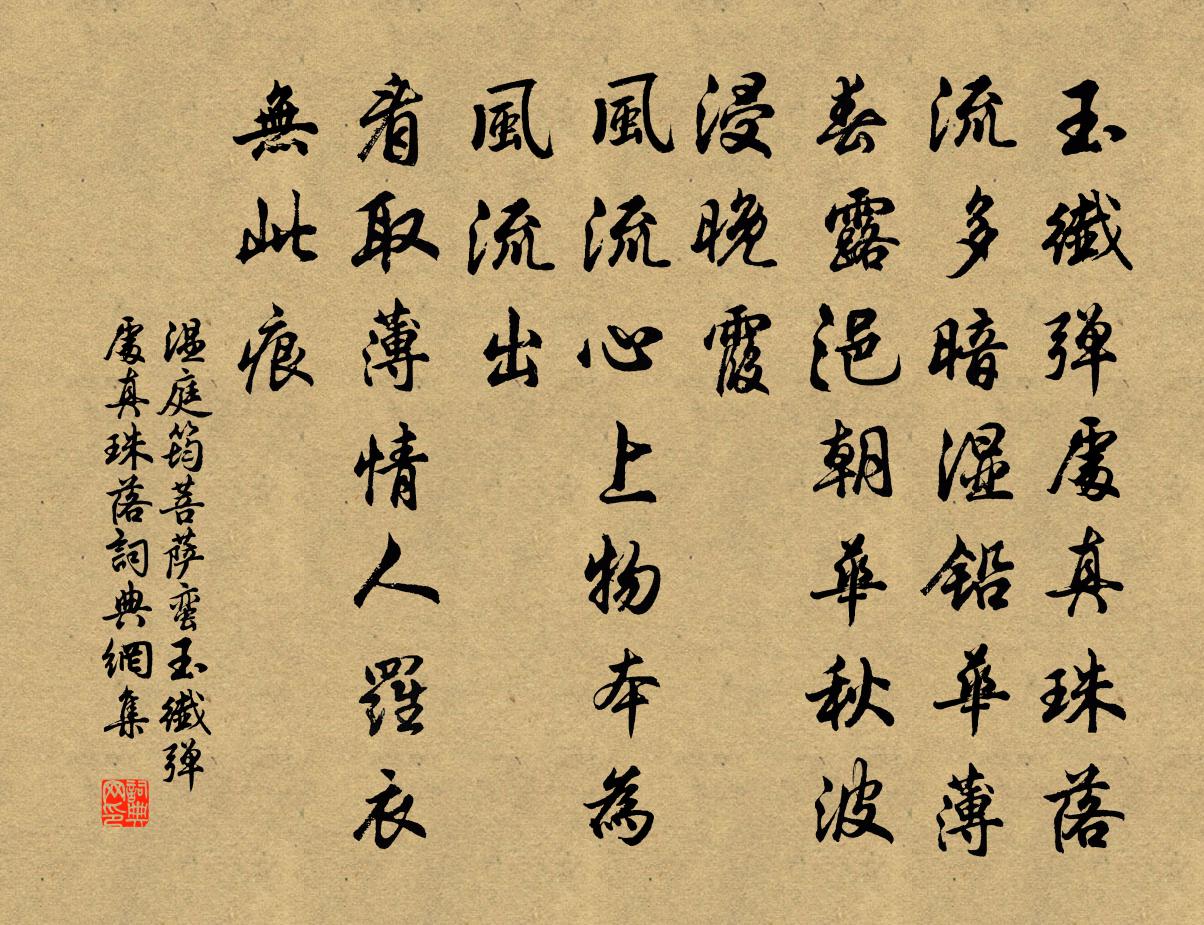 玉纖弹處真珠落
流多暗湿铅華薄
春露浥朝華秋波
浸晚霞
風流心上物本為
風流出
看取薄情人羅衣
無此痕
温庭筠菩萨蛮玉纖弹
處真珠落詞典網集
詞典网印